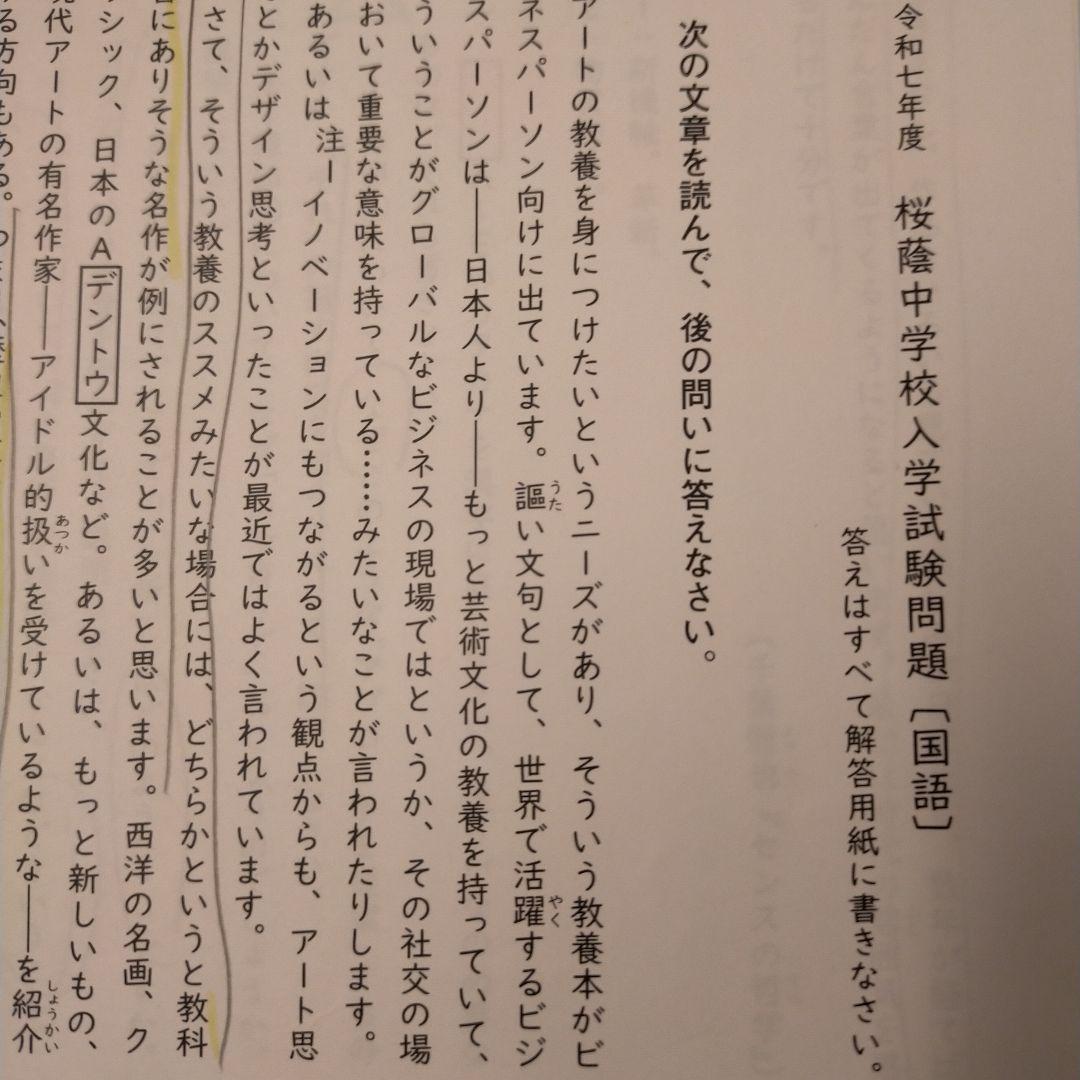 令和七年度　桜蔭中学校入学試験問題〔国語〕
答えはすべて解答用紙に書きなさい。
次の文章を読んで、後の問いに答えなさい。
アートの教養を身につけたいというニーズがあり、そういう教養本がビ
ネスパーソン向けに出ています。謳い文句として、世界で活躍するビジ
スパーソンは――日本人より――もっと芸術文化の教養を持っていて、
ういうことがグローバルなビジネスの現場ではというか、その社交の場
おいて重要な意味を持っている……みたいなことが言われたりします。
あるいは注一イノベーションにもつながるという観点からも、アート思
とかデザイン思考といったことが最近ではよく言われています。
さて、そういう教養のススメみたいな場合には、どちらかというと教科
にありそうな名作が例にされることが多いと思います。西洋の名画、ク
シック、日本のAデントウ文化など。あるいは、もっと新しいもの、
代アートの有名作家――アイドル的扱いを受けているような――を紹介
る方向もある。